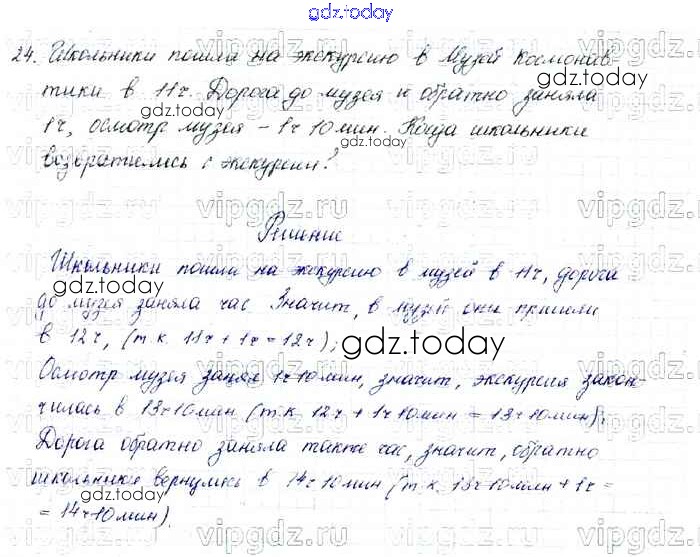 gdz.today
24. Школьники пошли на экскурсию в Музей Космонав-
тики в 11ч. Дорога до музея и обратно заняла
1ч, осмотр музея - 1ч 10 мин. Когда школьники
возвратились с экскурсии?
Решение
Школьники пошли на экскурсию в музей в 11ч, дорога
до музея заняла час. Значит, в музей они пришли
в 12ч, (т.к. 11ч + 1ч = 12ч);
Осмотр музея занял 1ч10мин, значит, экскурсия закон-
чилась в 13ч10мин (т.к. 12ч + 1ч10мин = 13ч10мин);
Дорога обратно заняла также час, значит, обратно
школьники вернулись в 14ч10мин (т.к. 13ч10мин + 1ч =
= 14ч10мин).